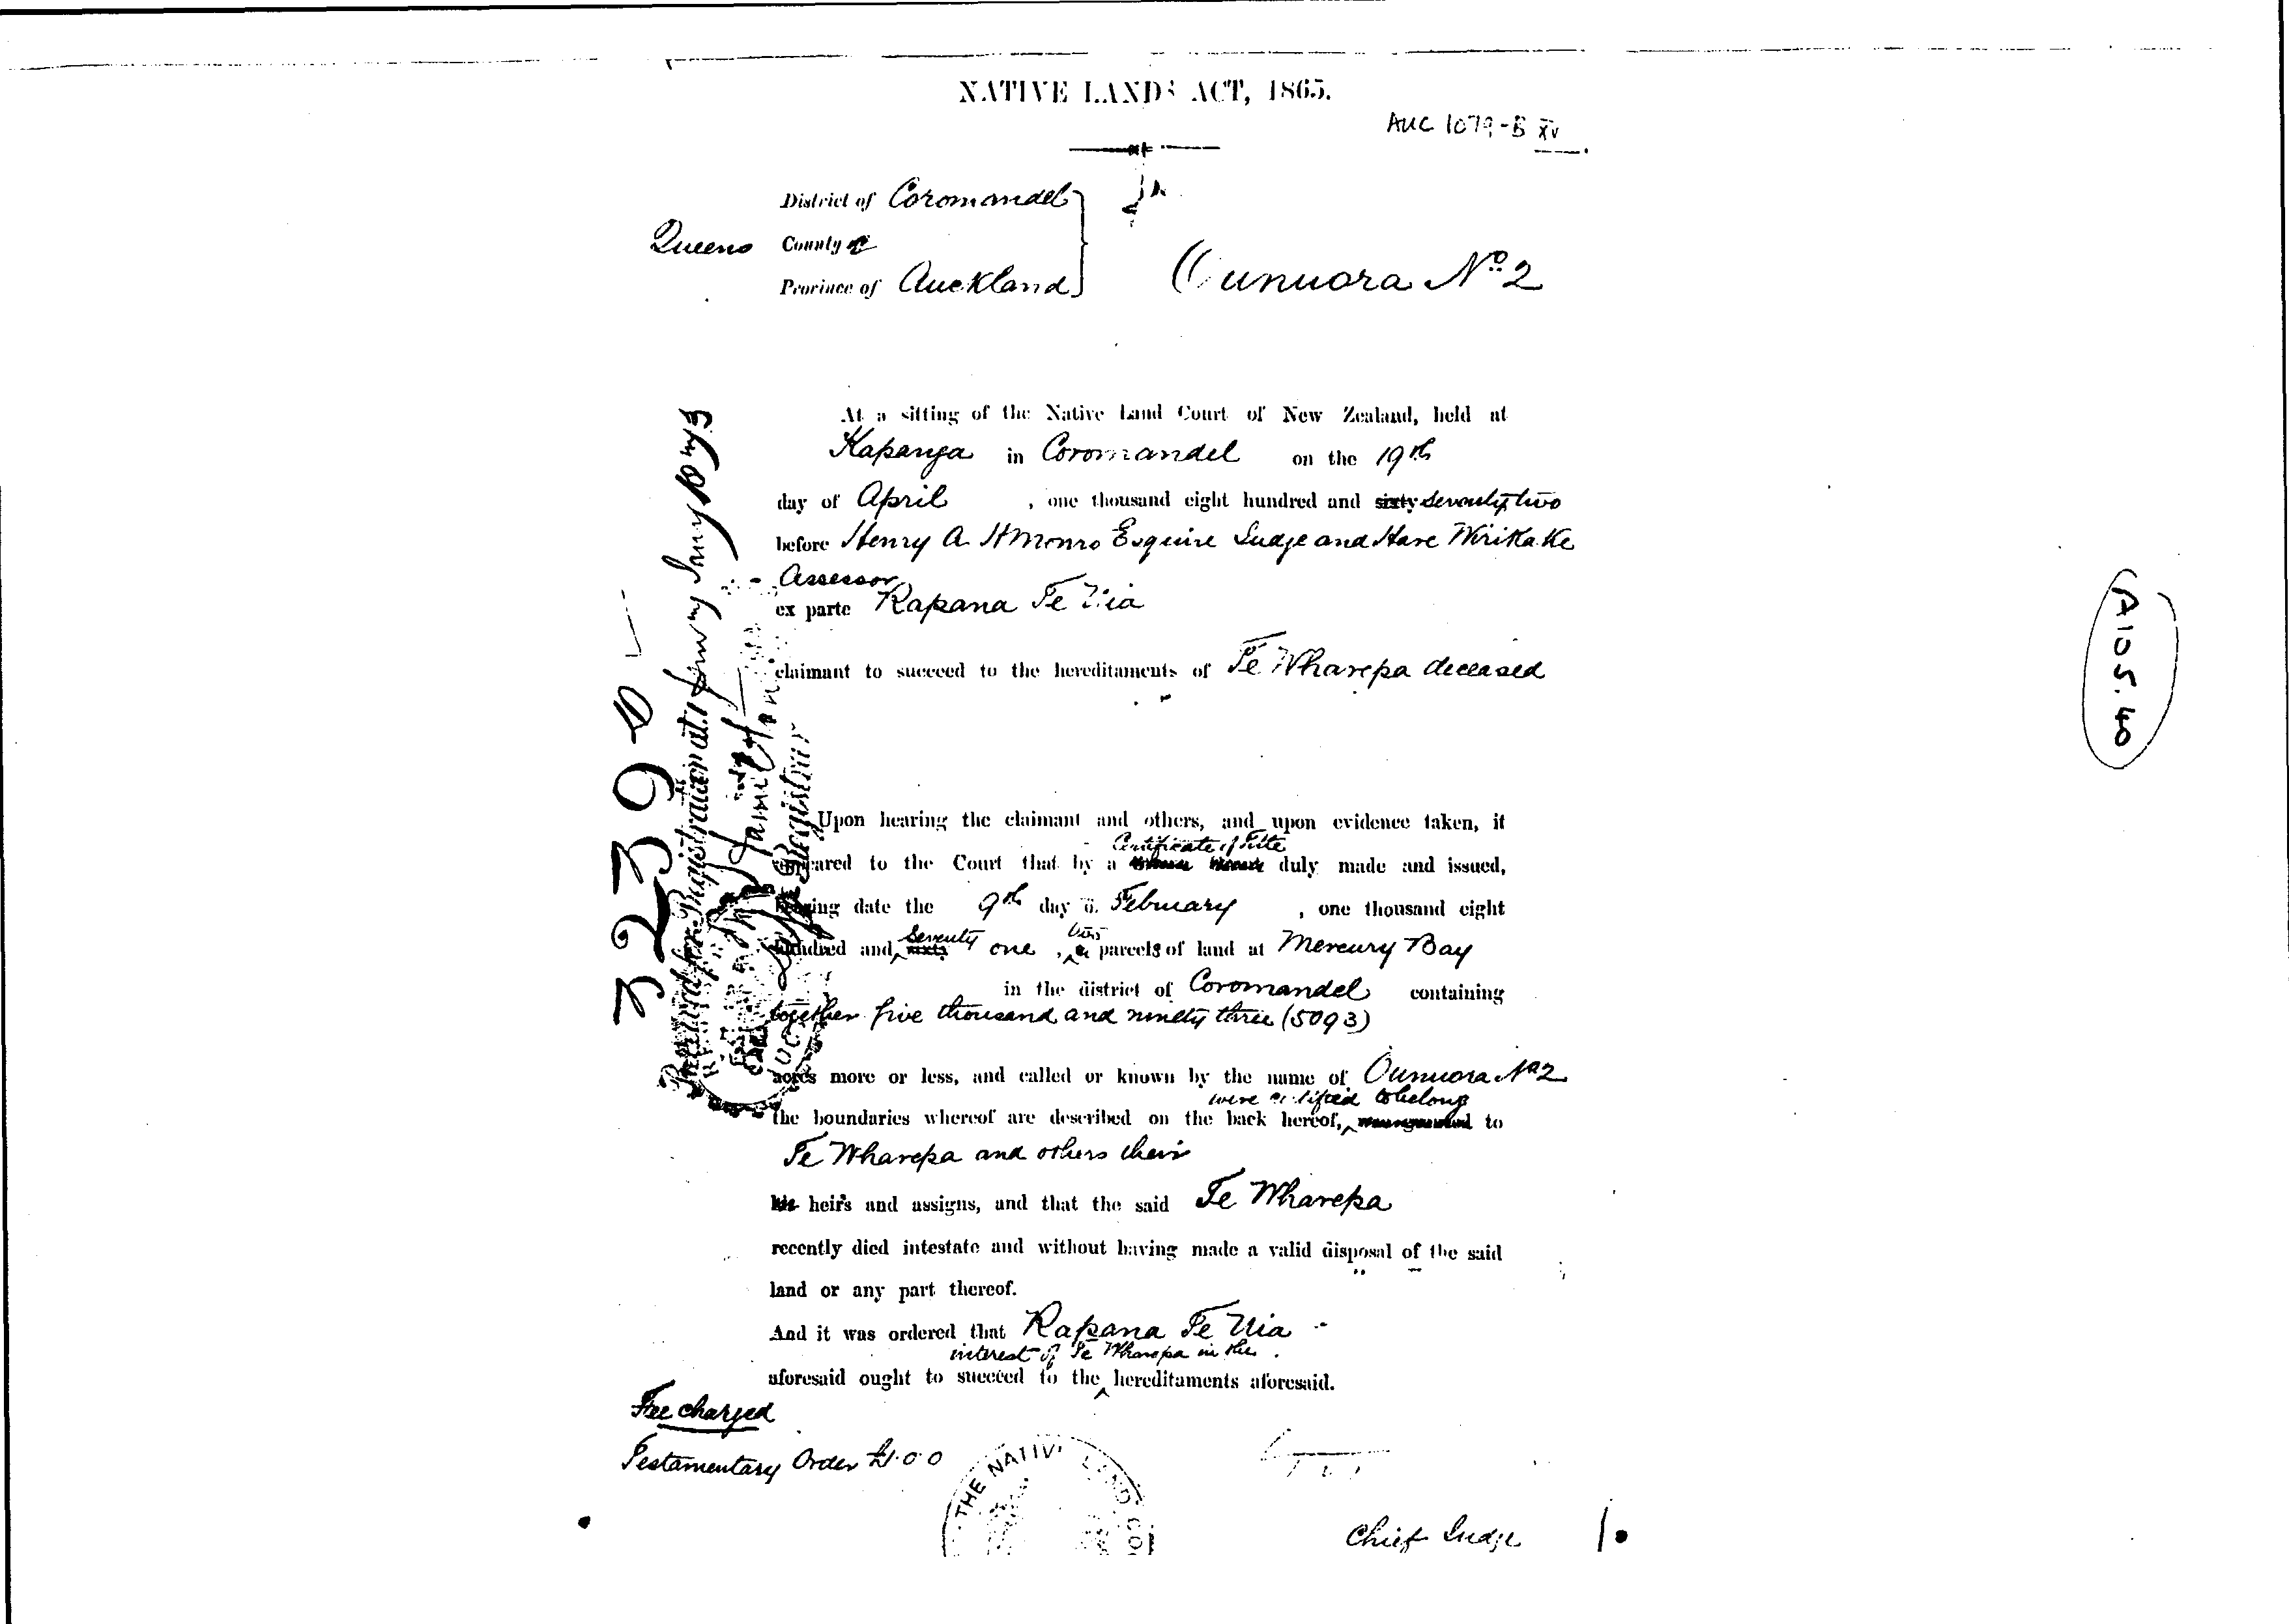 NATIVE LANDS ACT, 1865.
AUC 1079-B XV
District of Coromandel
Queens County
Province of Auckland
Ounuora No 2
At a sitting of the Native Land Court of New Zealand, held at
Kapanga in Coromandel on the 19th
day of April , one thousand eight hundred and sixty seventy two
before Henry A H Monro Esquire Judge and Hare Wirikake
Assessor
ex parte Rapana Te Uia
claimant to succeed to the hereditaments of Te Wharepa deceased
Upon hearing the claimant and others, and upon evidence taken, it
Certificate of Title
appeared to the Court that by a duly made and issued,
bearing date the 9th day o. February , one thousand eight
hundred and sixty seventy one , two parcels of land at Mercury Bay
in the district of Coromandel containing
together five thousand and ninety three (5093)
acres more or less, and called or known by the name of Ounuora No 2
were certified to belong
the boundaries whereof are described on the back hereof, to
Te Wharepa and others their
his heirs and assigns, and that the said Te Wharepa
recently died intestate and without having made a valid disposal of the said
land or any part thereof.
And it was ordered that Rapana Te Uia
interest of Te Wharepa in the
aforesaid ought to succeed to the hereditaments aforesaid.
Fee charged
Testamentary Order £1.0.0
THE NATIVE LAND CO
Chief Judge
3239
Registrar
A105.40